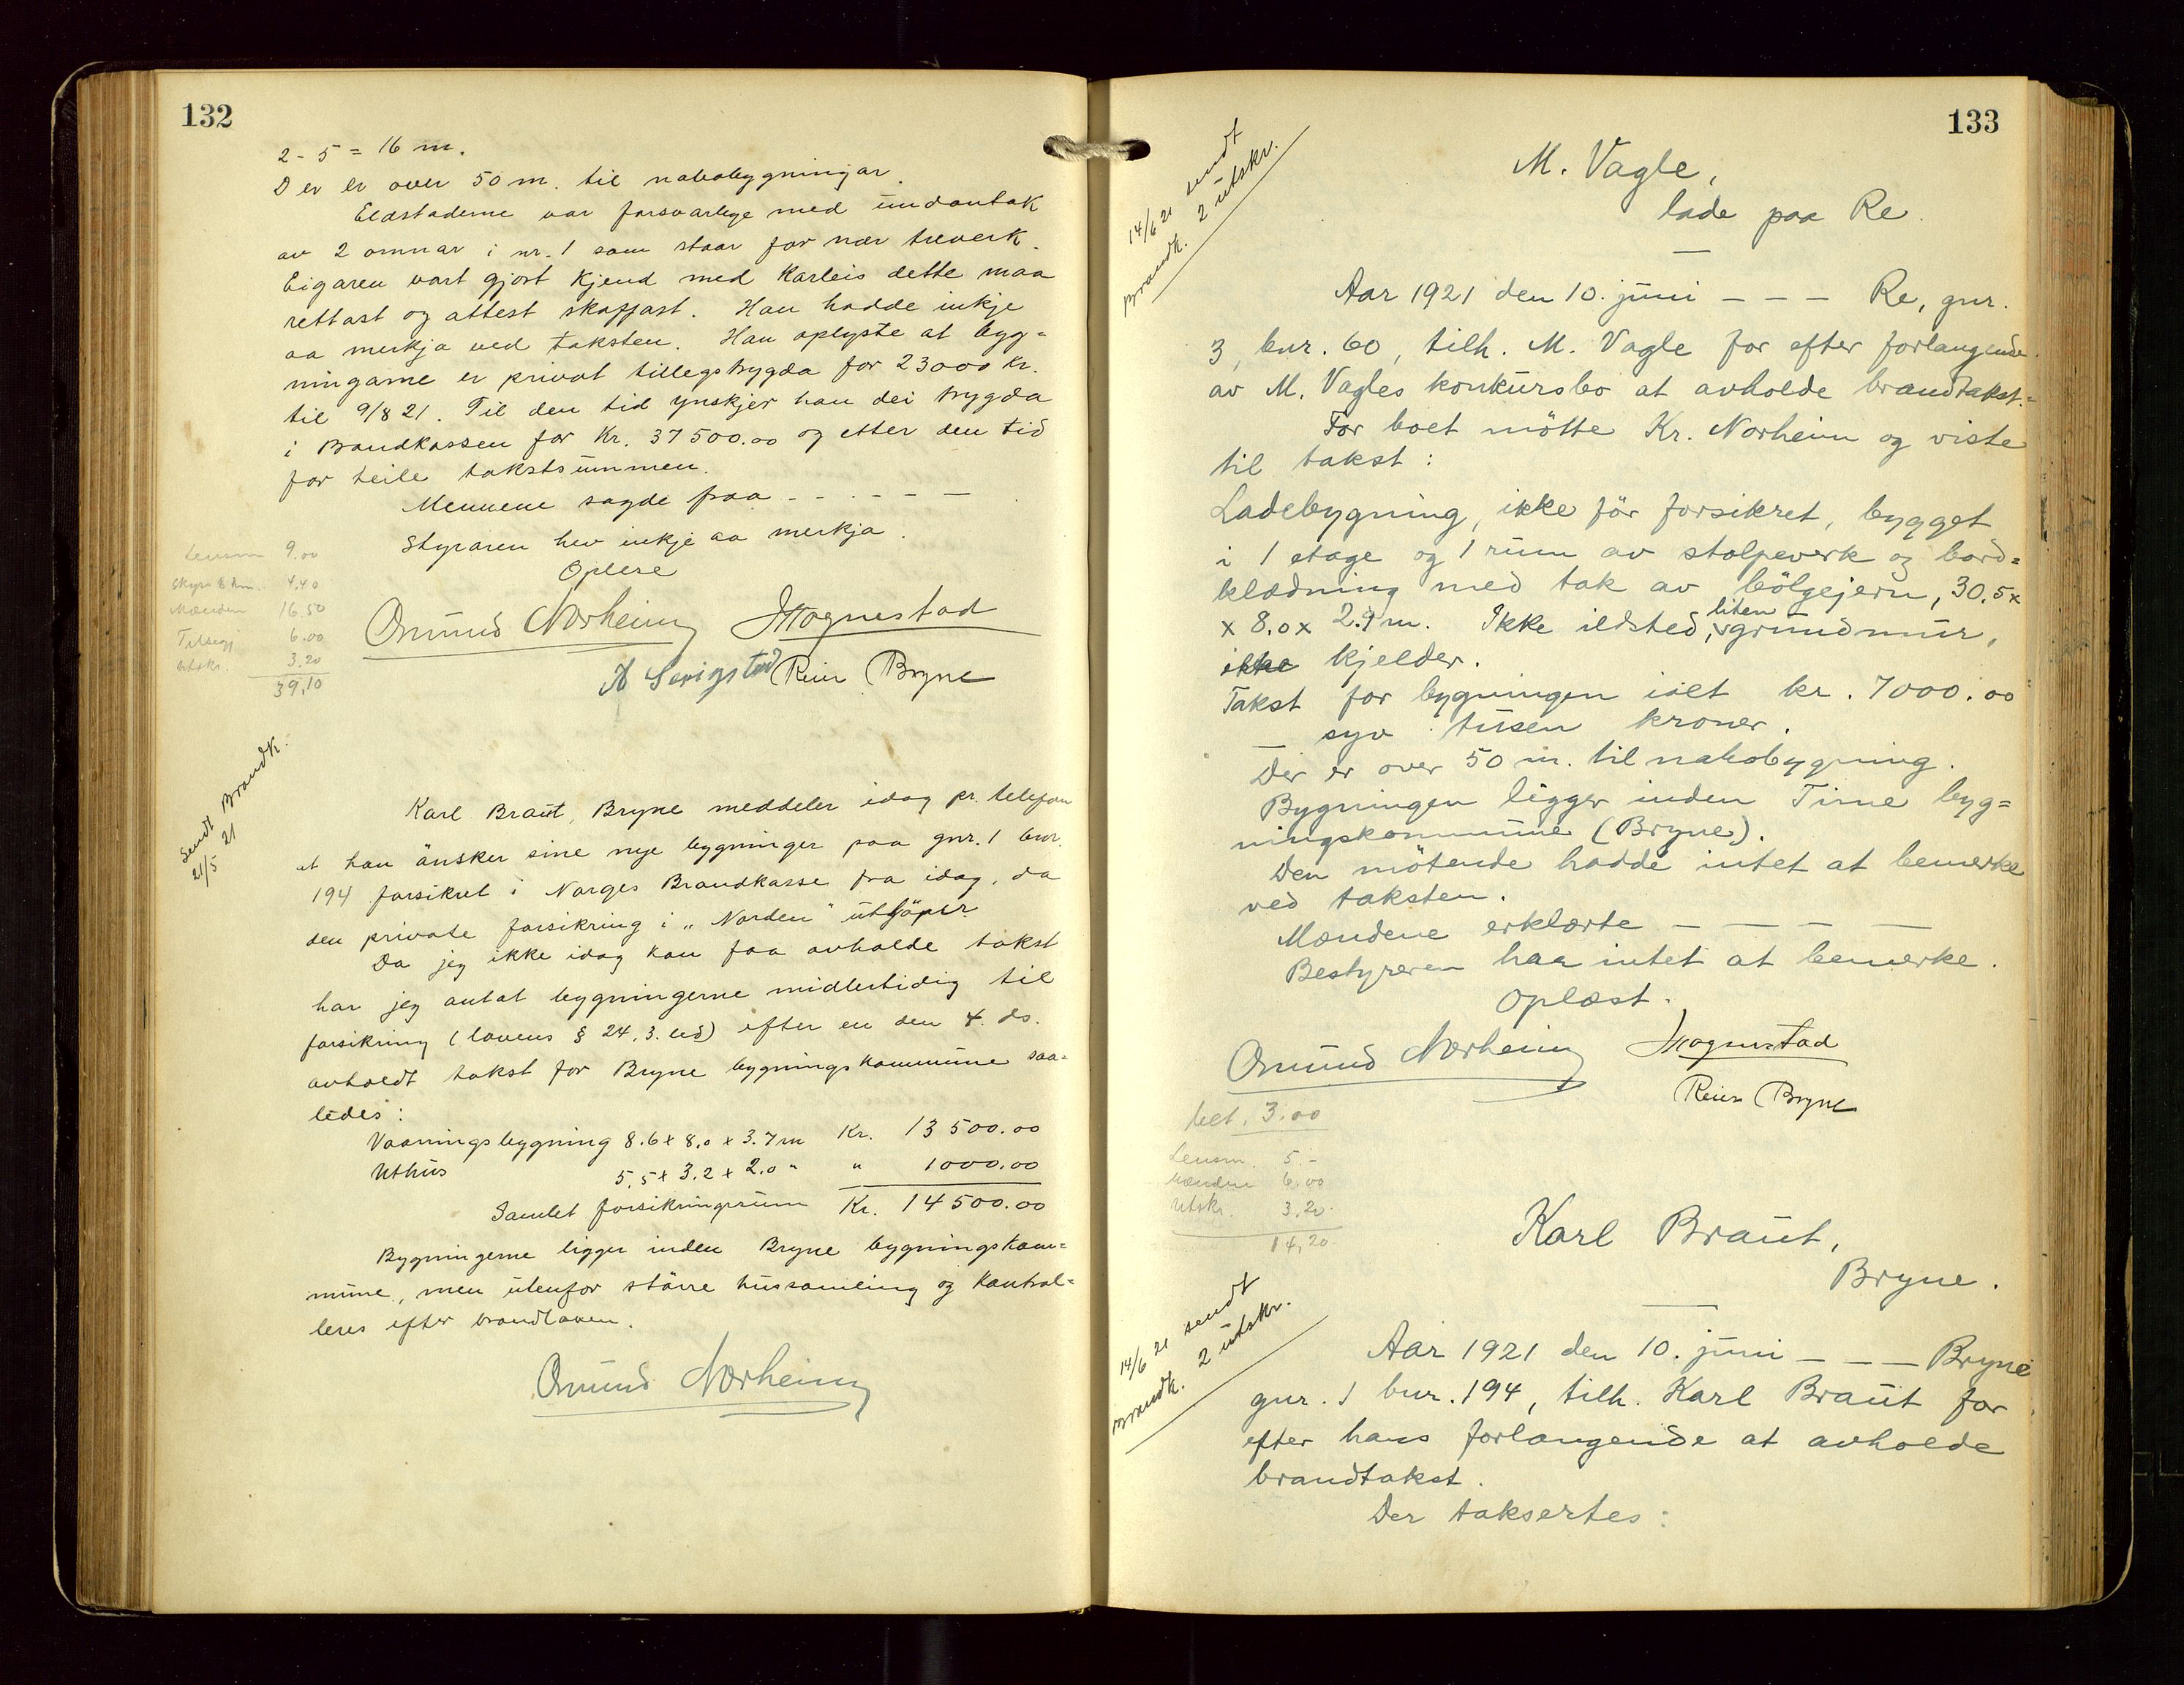 132
2 - 5 = 16 m.
Der er over 50 m. til nabobygningar.
Eldstaderne var forsvarlege med undantak
av 2 omnar i nr. 1 som staar for nær treverk.
Eigaren vart gjort kjend med korleis dette maa
rettast og attest skaffast. Han hadde inkje
aa merkja ved taksten. Han oplyste at byg=
ningarne er privat tillegstrygda for 23000 kr.
til 9/8 21. Til den tid ynskjer han dei trygda
i Brandkassen for Kr. 37500.00 og etter den tid
for heile takstsummen.
Mennene sagde fraa - - - - - -
Styraren hev inkje aa merkja.
Oplese
Lensm 9.00
Skyss 4.40
Mænden 16.50
6.00
Utskr. 3.20
39,10
Omund Norheim
Mognestad
Serigstad Reier Bryne
Sendt Brandk.
21/5 21
Karl Braut, Bryne meddeler idag pr. telefon
at han önsker sine nye bygninger paa gnr. 1 bnr.
194 forsikret i Norges Brandkasse fra idag, da
den private forsikring i „Norden" utlöper
Da jeg ikke idag kan faa avholde takst
har jeg antat bygningerne midlertidig til
forsikring (lovens § 24, 3. led) efter en den 4. ds.
avholdt takst for Bryne bygningskommune saa-
ledes:
Vaaningsbygning 8.6 x 8.0 x 3.7 m Kr. 13500.00
Uthus 5.5 x 3.2 x 2.0 " " 1000.00
Samlet forsikringssum Kr. 14500.00
Bygningerne ligger inden Bryne bygningskom=
mune, men utenfor större hussamling og kontrol=
leres efter brandloven.
Omund Norheim
133
14/6 21 sendt
Brandk. 2 utskr.
M. Vagle,
lade paa Re.
Aar 1921 den 10. juni - - - Re, gnr.
3, bnr. 60, tilh. M. Vagle for efter forlangende
av M. Vagles konkursbo at avholde brandtakst.
For boet mötte Kr. Norheim og viste
til takst:
Ladebygning, ikke för forsikret, bygget
i 1 etage og 1 rum av stolpeverk og bord=
klædning med tak av bölgejern, 30.5 x
x 8.0 x 2.9 m. Ikke ildsted, liten grundmur,
ikke kjelder.
Takst for bygningen ialt kr. 7000.00
syv tusen kroner.
Der er over 50 m. til nabobygning.
Bygningen ligger inden Time byg=
ningskommune (Bryne).
Den mötende hadde intet at bemerke
ved taksten.
Mændene erklærte - - - -
Bestyreren har intet at bemerke.
Oplæst.
Omund Norheim Mognestad
Reier Bryne
bet. 3.00
Lensm. 5.-
Mænden 6.00
Utskr. 3.20
14,20
Karl Braut,
Bryne.
14/6 21 sendt
Brandk. 2 utskr.
Aar 1921 den 10. juni - - - Bryne
gnr. 1 bnr. 194, tilh. Karl Braut for
efter hans forlangende at avholde
brandtakst.
Der taksertes: